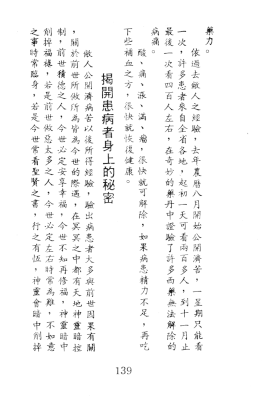 藥力。
依過去敝人之經驗，去年農曆八月開始公開濟苦，一星期只能看
一次，許多患者來自全省各地，起初一天可看兩百多人，到十一月止
最後一次看四百人左右，在奇妙的藥丹中證驗了許多西藥無法解除的
病痛。
酸、痛、漲、滿、癢，很快就可解除，如果病患精力不足，再吃
下些補血之方，很快就恢復健康。
揭開患病者身上的秘密
敝人公開濟病苦以後所得經驗，驗出病患者大多與前世因果有關
，關於前世所做所為皆為今世的際遇，在冥冥之中都有天地神靈暗控
制，前世積德之人，今世必定安享幸福，今世不知再修福，神靈暗中
削掉福祿，若是前世做惡太多之人，今世必定左右時常為難，不如意
之事時常臨身，若是今世常看聖賢之書，行之有恆，神靈會暗中削掉
139